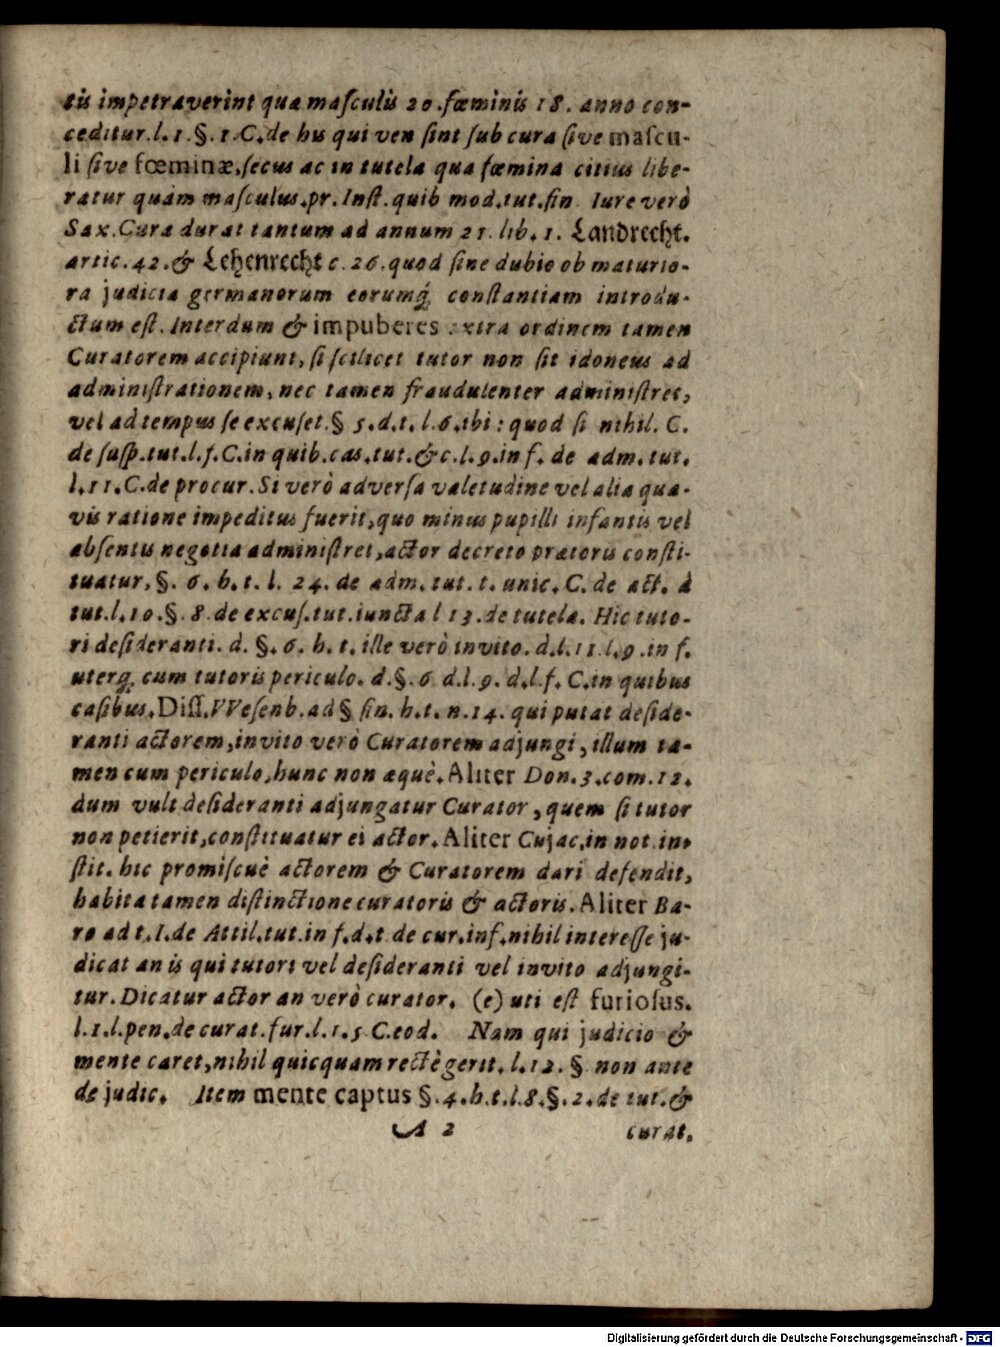 tis impetraverint qua maſculis 20. fœminis 18. anno con-
ceditur. l. 1. §. 1. C. de his qui ven ſint ſub cura ſive maſcu-
li ſive fœminæ, ſecus ac in tutela qua fœmina citius libe-
ratur quàm maſculus. pr. Inſt. quib mod. tut. fin Iure verò
Sax. Cura durat tantum ad annum 21. lib. 1. Landrecht.
artic. 42. & Lehenrecht c. 26. quod ſine dubio ob maturio-
ra judicia germanorum eorumq́; conſtantiam introdu-
ctum eſt. Interdum & impuberes extra ordinem tamen
Curatorem accipiunt, ſi ſcilicet tutor non ſit idoneus ad
adminiſtrationem, nec tamen fraudulenter adminiſtret,
vel ad tempus ſe excuſet. § 5. d. t. l. 6. ibi: quod ſi nihil. C.
de ſuſp. tut. l. f. C. in quib. cas. tut. & c. l. 9. in f. de adm. tut.
l. 11. C. de procur. Si verò adverſa valetudine vel alia qua-
vis ratione impeditus fuerit, quo minus pupilli infantis vel
abſentis negotia adminiſtret, actor decreto prætoris conſti-
tuatur, §. 6. h. t. l. 24. de adm. tut. t. unic. C. de act. à
tut. l. 10. §. 8. de excuſ. tut. iuncta l 13. de tutela. Hic tuto-
ri deſideranti. d. §. 6. h. t. ille verò invito. d. l. 11. l. 9. in f.
uterq; cum tutoris periculo. d. §. 6 d. l. 9. d. l. f. C. in quibus
caſibus. Diſſ. VVeſenb. ad § fin. h. t. n. 14. qui putat deſide-
ranti actorem, invito verò Curatorem adjungi, illum ta-
men cum periculo, hunc non æquè. Aliter Don. 3. com. 12.
dum vult deſideranti adjungatur Curator, quem ſi tutor
non petierit, conſtituatur ei actor. Aliter Cujac. in not. in-
ſtit. hic promiſcuè actorem & Curatorem dari defendit,
habita tamen diſtinctione curatoris & actoris. Aliter Ba-
ro ad t. I. de Attil. tut. in f. d. t de cur. inf. nihil intereſſe ju-
dicat an is qui tutori vel deſideranti vel invito adjungi-
tur. Dicatur actor an verò curator. (e) uti eſt furioſus.
l. 1. l. pen. de curat. fur. l. 1. 5 C. eod. Nam qui judicio &
mente caret, nihil quicquam rectè gerit. l. 12. § non ante
de judic. Item mente captus §. 4. h. t. l. 8. §. 2. de tut. &
A 2 curat.
Digitalisierung gefördert durch die Deutsche Forschungsgemeinschaft - DFG